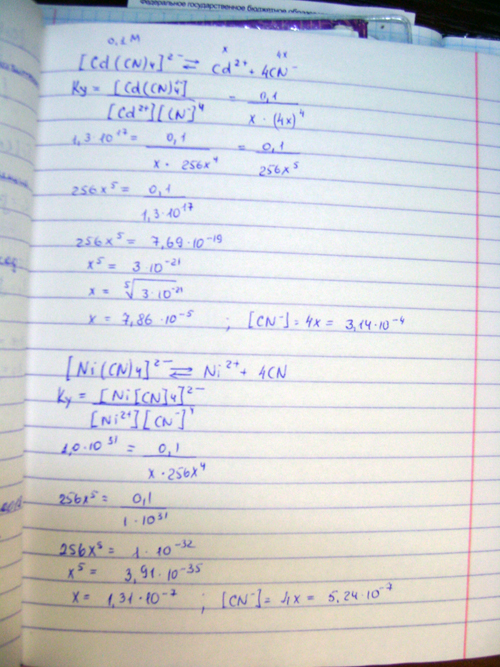 Федеральное государственное бюджетное образо
0,1 M x 4x
[Cd(CN)₄]²⁻ ⇄ Cd²⁺ + 4CN⁻
Ky = [Cd(CN)₄] / [Cd²⁺][CN⁻]⁴ = 0,1 / x · (4x)⁴
1,3·10¹⁷ = 0,1 / x · 256x⁴ = 0,1 / 256x⁵
256x⁵ = 0,1 / 1,3·10¹⁷
256x⁵ = 7,69·10⁻¹⁹
x⁵ = 3·10⁻²¹
x = ⁵√3·10⁻²¹
x = 7,86·10⁻⁵ ; [CN⁻] = 4x = 3,14·10⁻⁴
[Ni(CN)₄]²⁻ ⇄ Ni²⁺ + 4CN
Ky = [Ni[CN]₄]²⁻ / [Ni²⁺][CN⁻]⁴
1,0·10³¹ = 0,1 / x·256x⁴
256x⁵ = 0,1 / 1·10³¹
256x⁵ = 1·10⁻³²
x⁵ = 3,91·10⁻³⁵
x = 1,31·10⁻⁷ ; [CN⁻] = 4x = 5,24·10⁻⁷